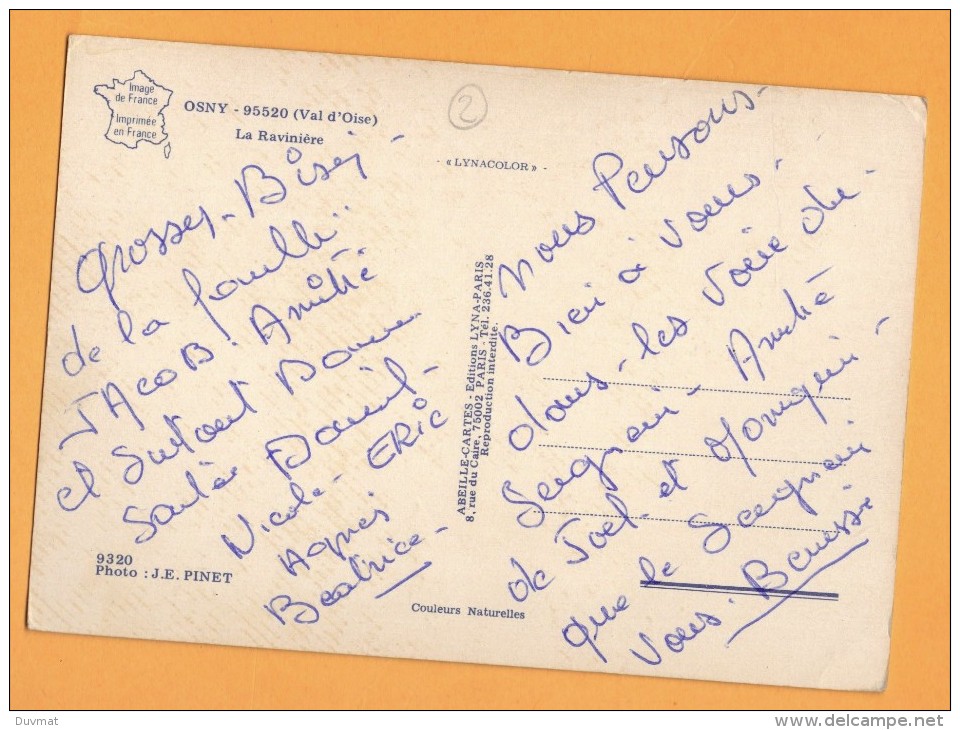 Image
de France
Imprimée
en France
OSNY - 95520 (Val d'Oise)
La Ravinière
- « LYNACOLOR » -
2
Grosses - Bises -
de la famille
JACOB. Amitié
et surtout Bonne
Santée Daniel -
Nicole - ERIC
Agnes
Beatrice -
9320
Photo : J.E. PINET
ABEILLE-CARTES - Editions LYNA-PARIS
8, rue du Caire, 75002 PARIS - Tél. 236.41.28
Reproduction interdite.
Couleurs Naturelles
Nous Pensons -
Bien à vous -
dans - les Voeie du -
Seigneur - Amitié
de Joel et Monique -
que le Seigneur
vous - Benesse
Duvmat
www.delcampe.net